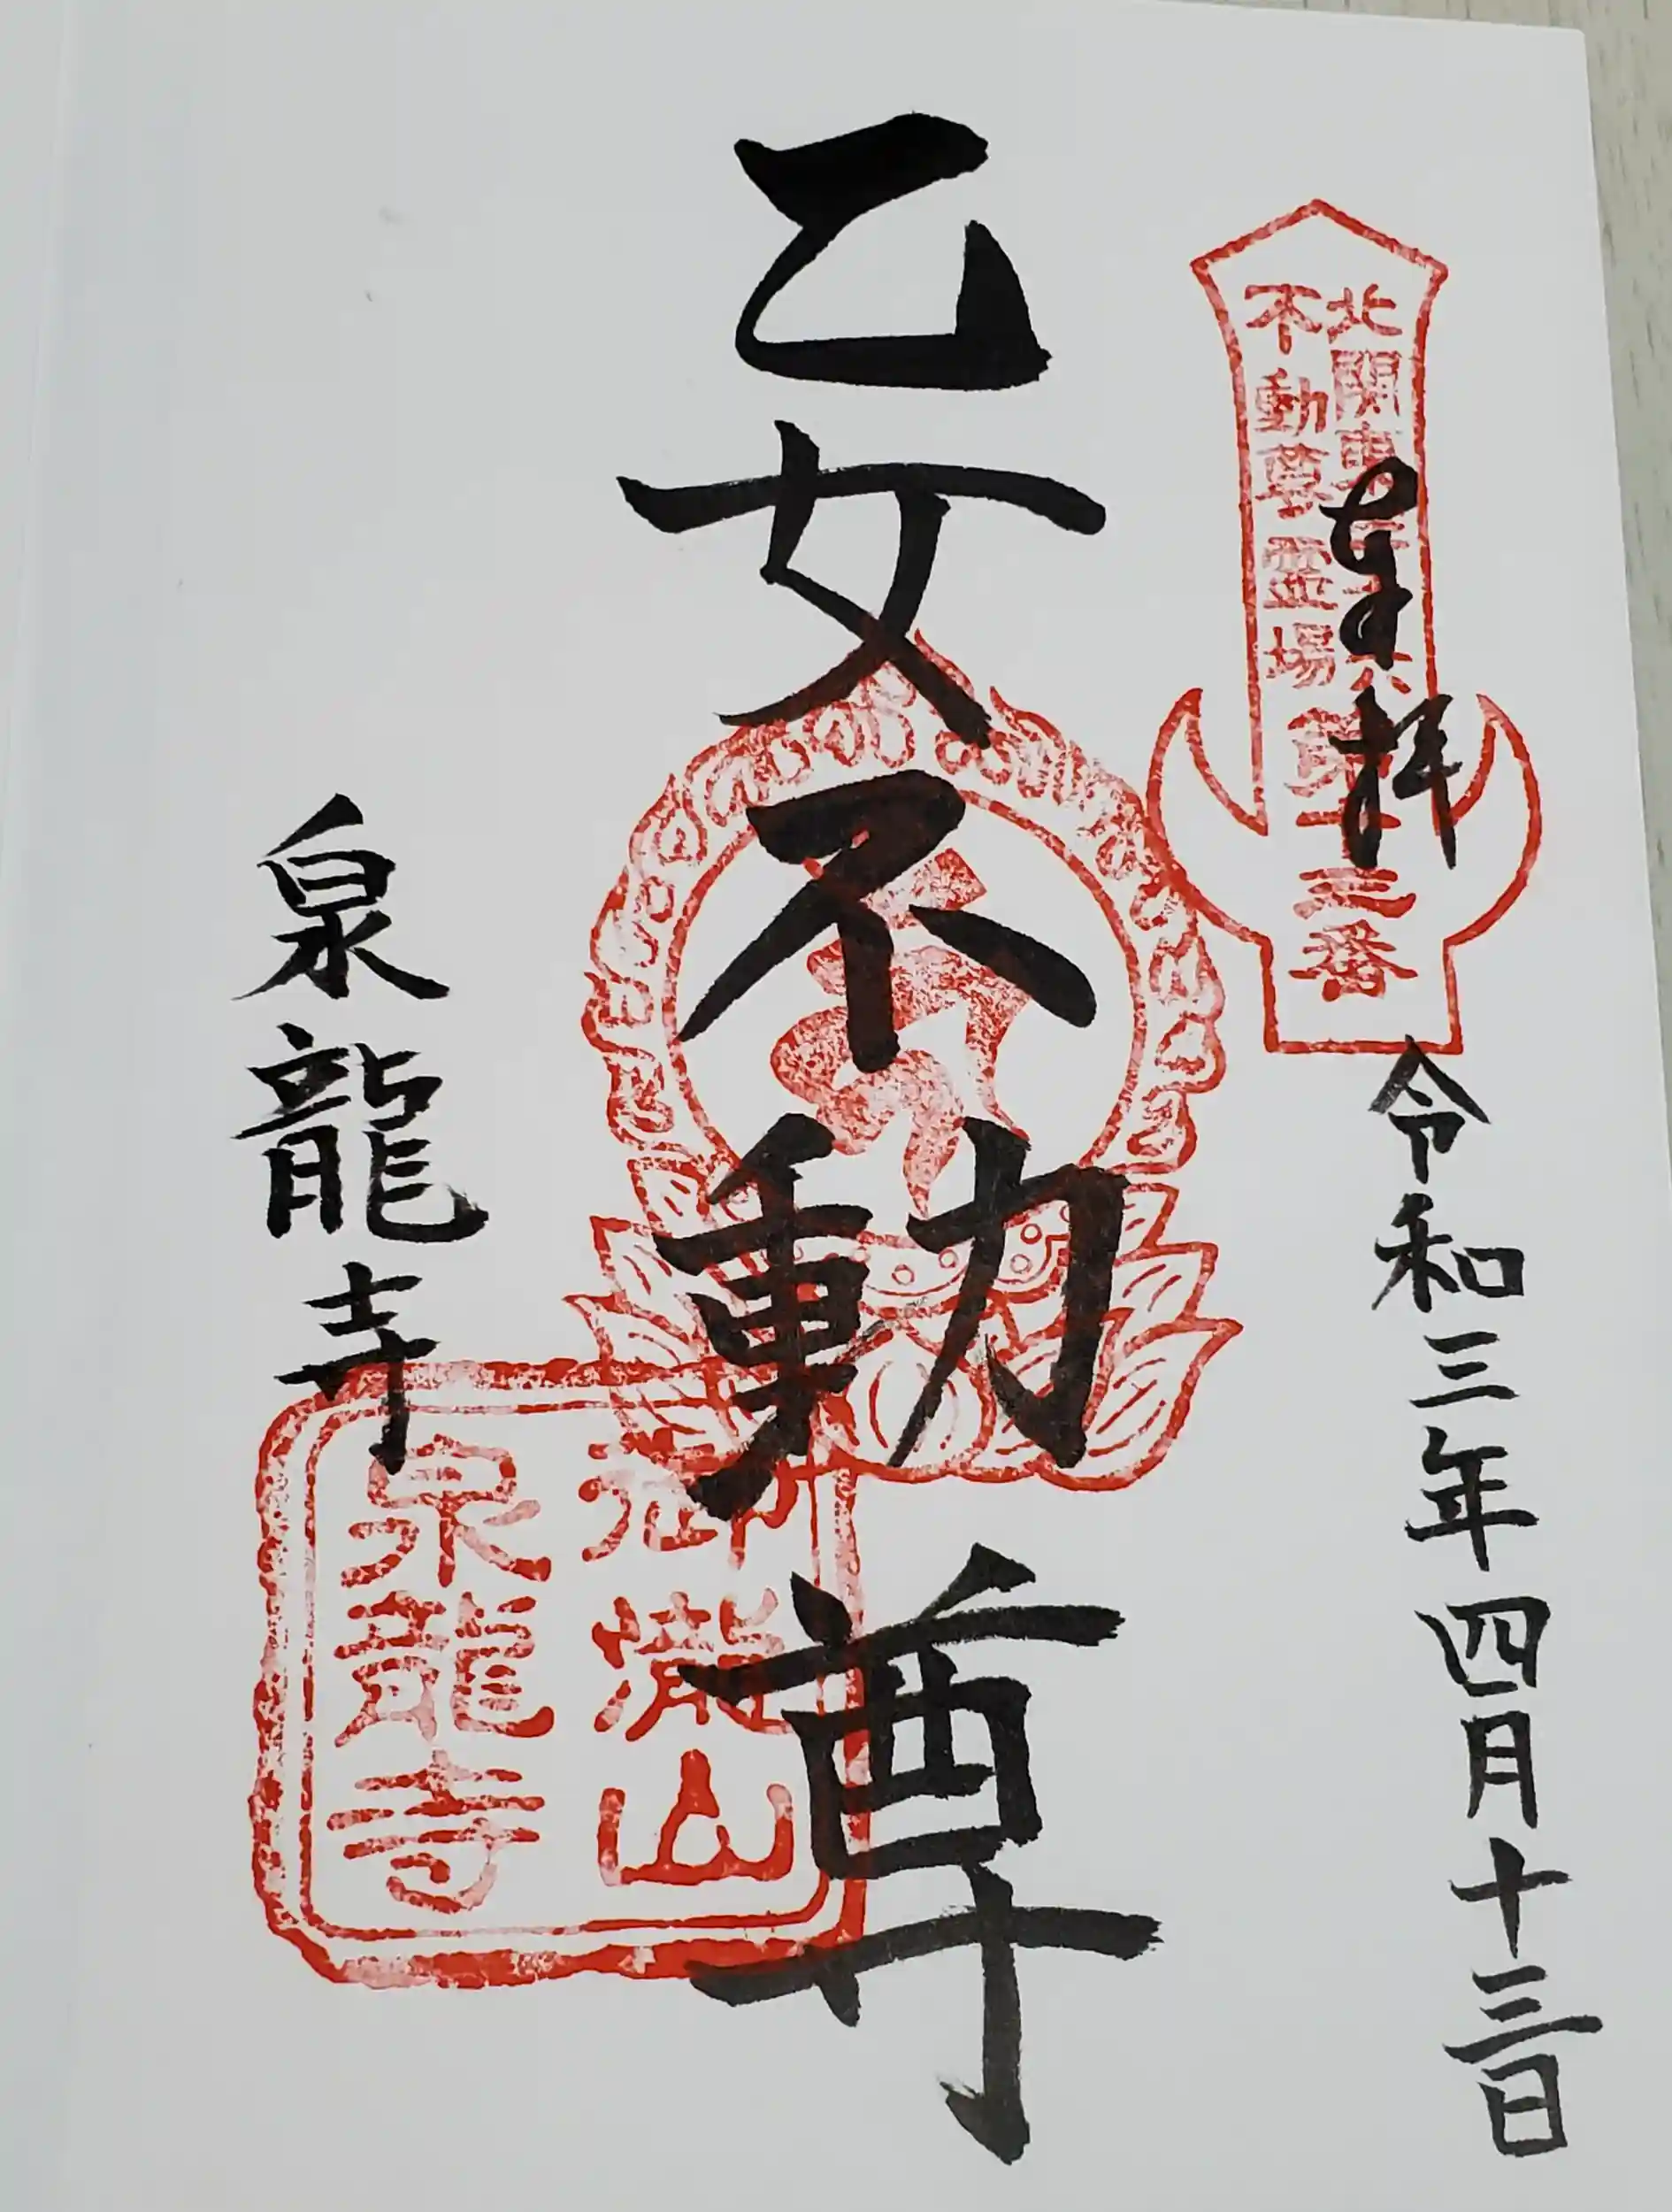 奉拝
令和三年四月十三日
北関東三十六
不動尊霊場
乙女不動尊
泉龍寺
山
泉龍寺